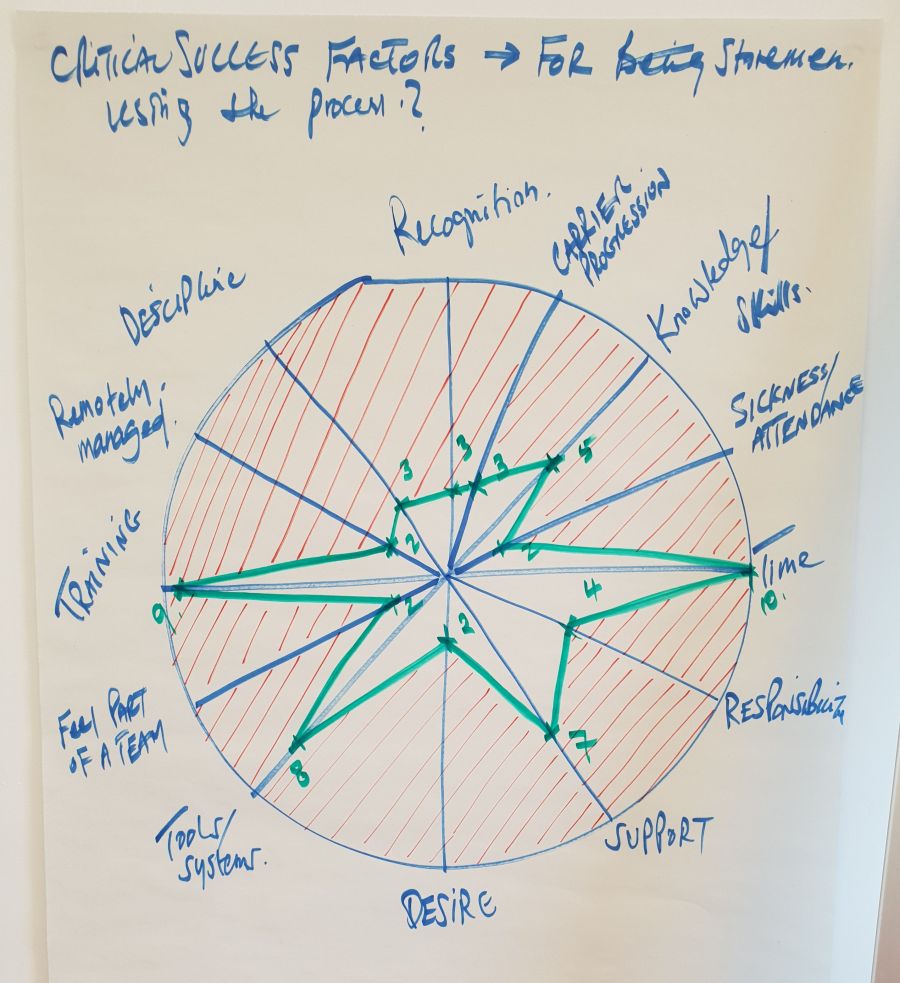 CRITICAL SUCCESS FACTORS → FOR being Storemen.
using the process.?
Recognition.
CARRIER
PROGRESSION
Knowledge/
Skills.
SICKNESS/
ATTENDANCE
Time
RESPONSIBILITY
SUPPORT
DESIRE
Tools/
systems.
FEEL PART
OF A TEAM
TRAINING
Remotely
managed.
DESCIPLINE
3
3
3
5
2
10.
4
7
2
8
2
9
2